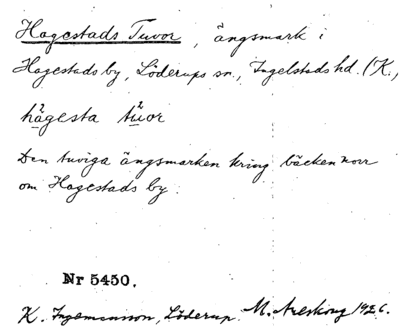 Hagestads Tuvor, ängsmark i
Hagestads by, Löderups sn., Ingelstads hd. (K.,
hạ̄gesta tūor
Den tuviga ängsmarken kring bäcken norr
om Hagestads by.
Nr 5450.
K. Ingemansson, Löderup. M. Areskoug 1926.